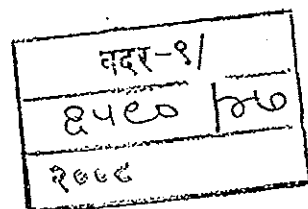 बदर-९/
६५९० / २७
२००८